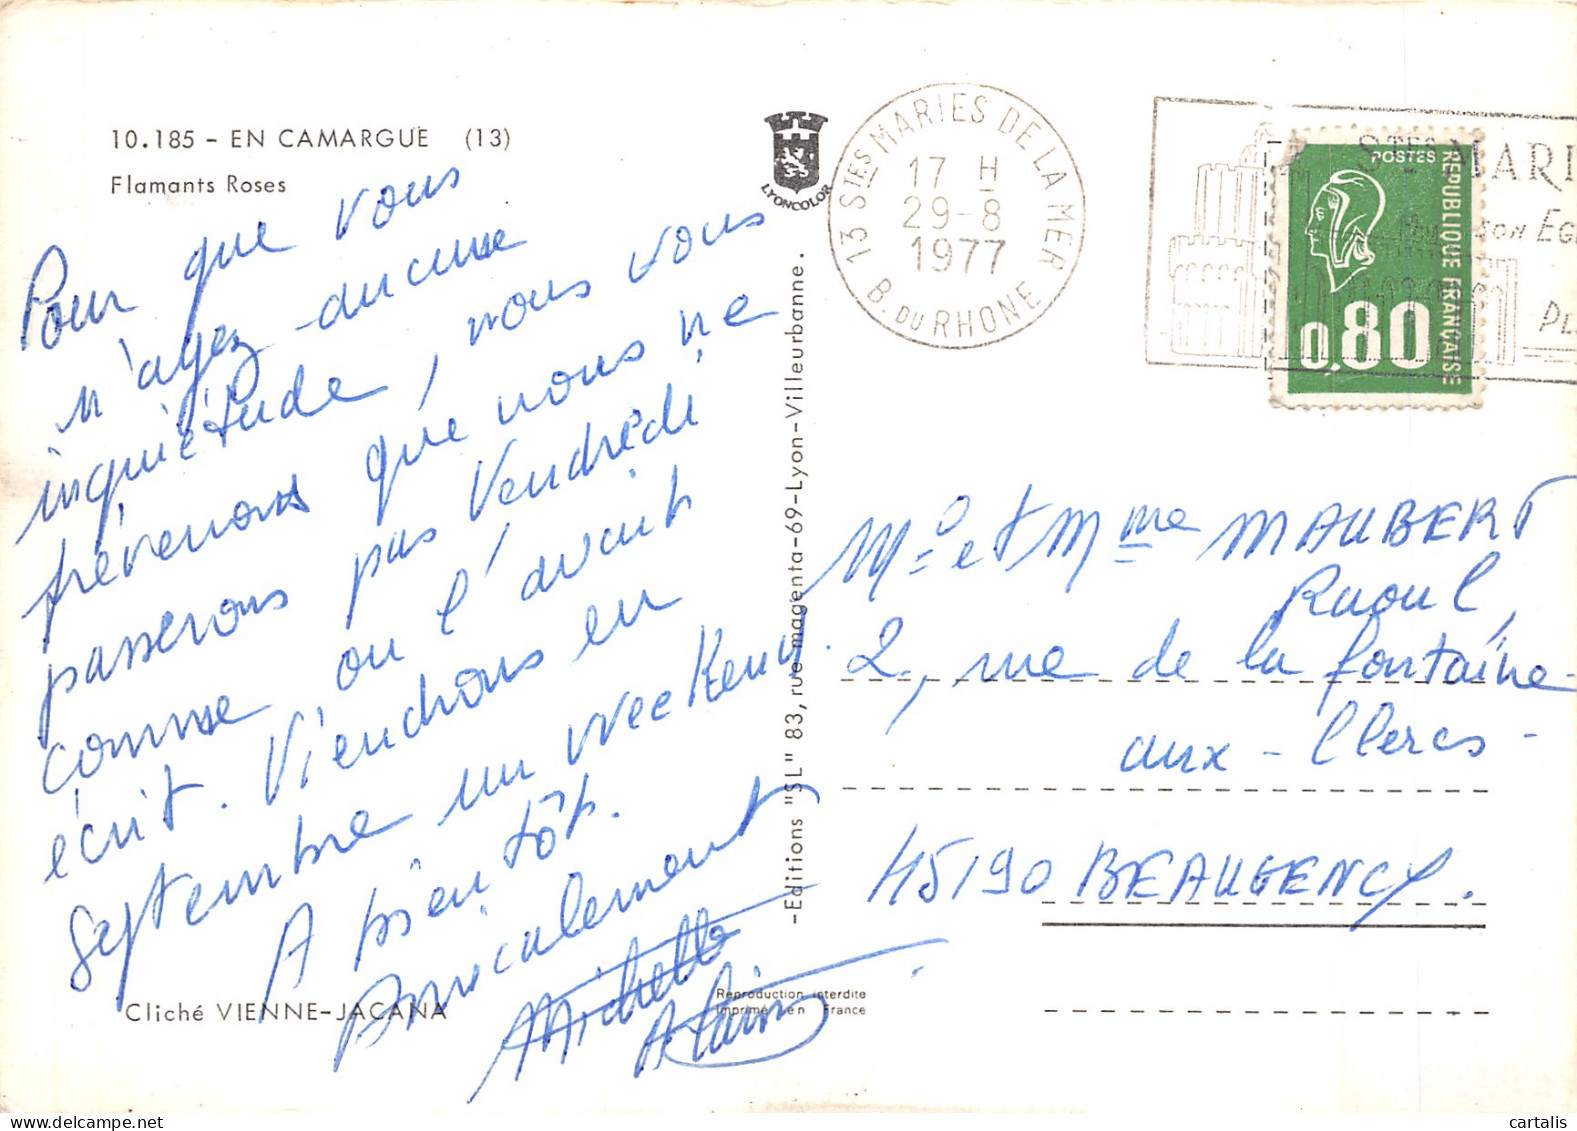 10.185 - EN CAMARGUE (13)
Flamants Roses
LYONCOLOR
Pour que vous
n'ayez aucune
inquiétude, nous vous
prévenons que nous ne
passerons pas Vendredi
comme on l'avait
écrit. Viendrons en
Septembre un Week End.
A bientôt.
Amicalement
Michelle
Alain
Cliché VIENNE-JACANA
Reproduction interdite
Imprimé en France
-Editions "SL" 83, rue magenta-69-Lyon-Villeurbanne.
13 STES MARIES DE LA MER
17 H
29-8
1977
B. DU RHONE
STES MARI
SON EGL
POSTES
REPUBLIQUE FRANÇAISE
0.80
Mo et Mme MAUBERT
Raoul,
2, rue de la fontaine-
aux-Clercs-
45190 BEAUGENCY.
cartalis
delcampe.net